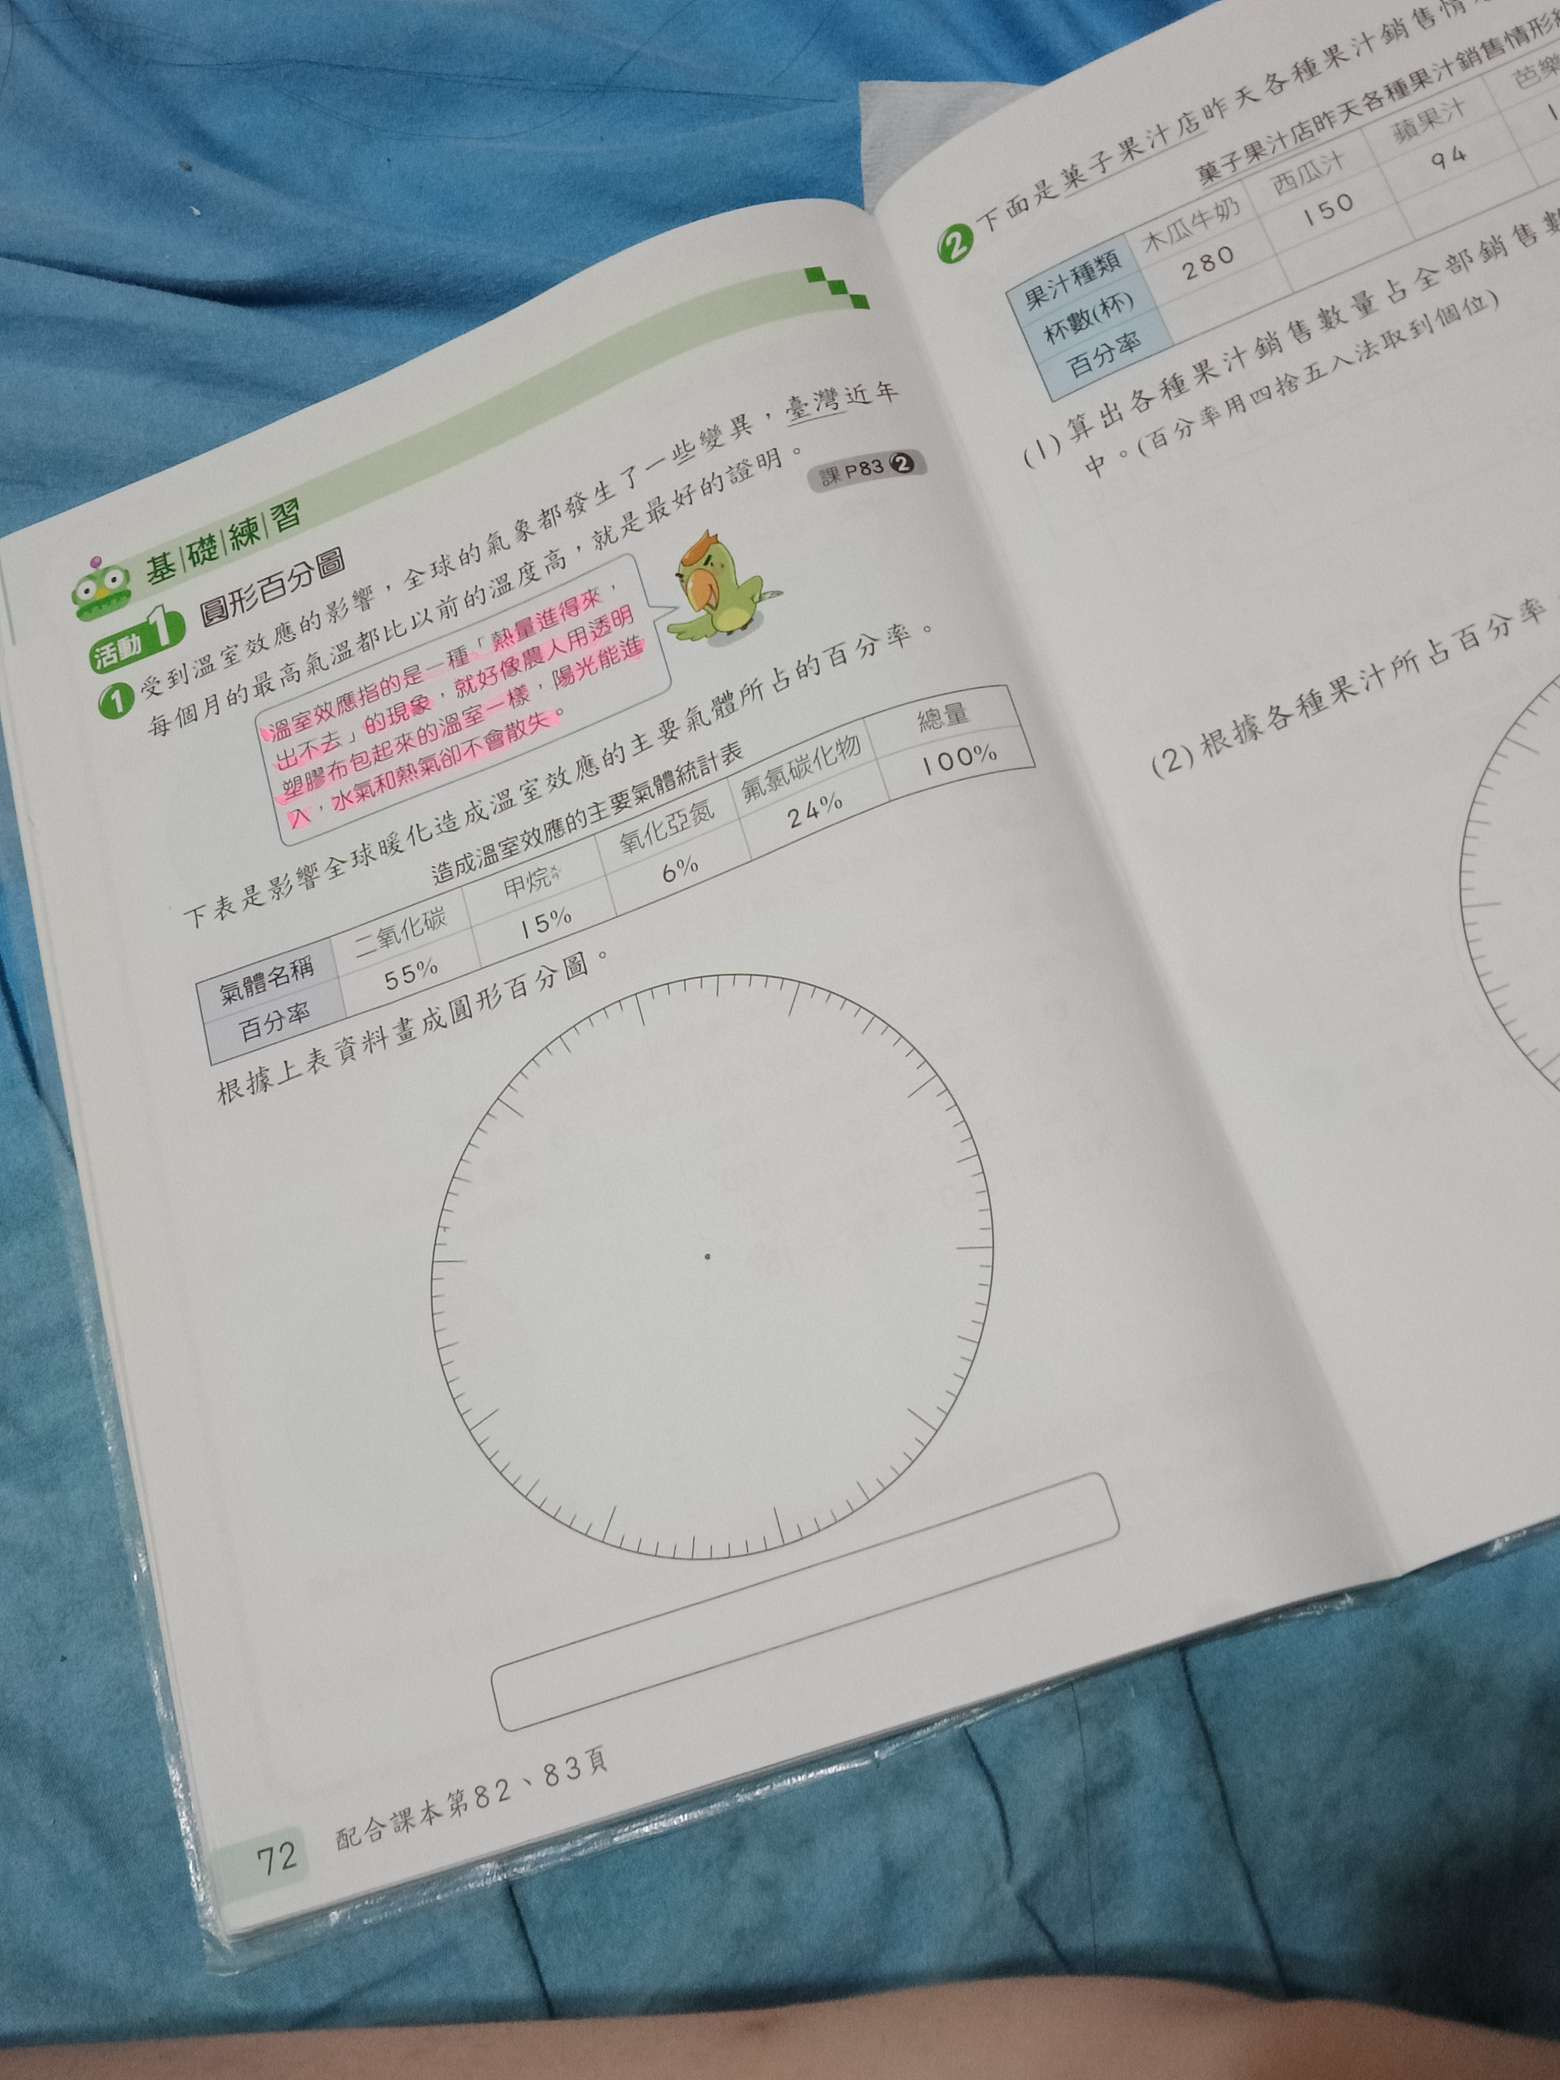 基礎練習
活動1 圓形百分圖
1 受到溫室效應的影響，全球的氣象都發生了一些變異，臺灣近年
每個月的最高氣溫都比以前的溫度高，就是最好的證明。
課P83 2
溫室效應指的是一種「熱量進得來，
出不去」的現象，就好像農人用透明
塑膠布包起來的溫室一樣，陽光能進
入，水氣和熱氣卻不會散失。
下表是影響全球暖化造成溫室效應的主要氣體所占的百分率。
造成溫室效應的主要氣體統計表
氣體名稱 二氧化碳 甲烷 氧化亞氮 氟氯碳化物 總量
百分率 55% 15% 6% 24% 100%
根據上表資料畫成圓形百分圖。
72 配合課本第82、83頁
2 下面是菓子果汁店昨天各種果汁銷售情
菓子果汁店昨天各種果汁銷售情形
果汁種類 木瓜牛奶 西瓜汁 蘋果汁 芭樂
杯數(杯) 280 150 94 1
百分率
(1)算出各種果汁銷售數量占全部銷售數
中。(百分率用四捨五入法取到個位)
(2)根據各種果汁所占百分率